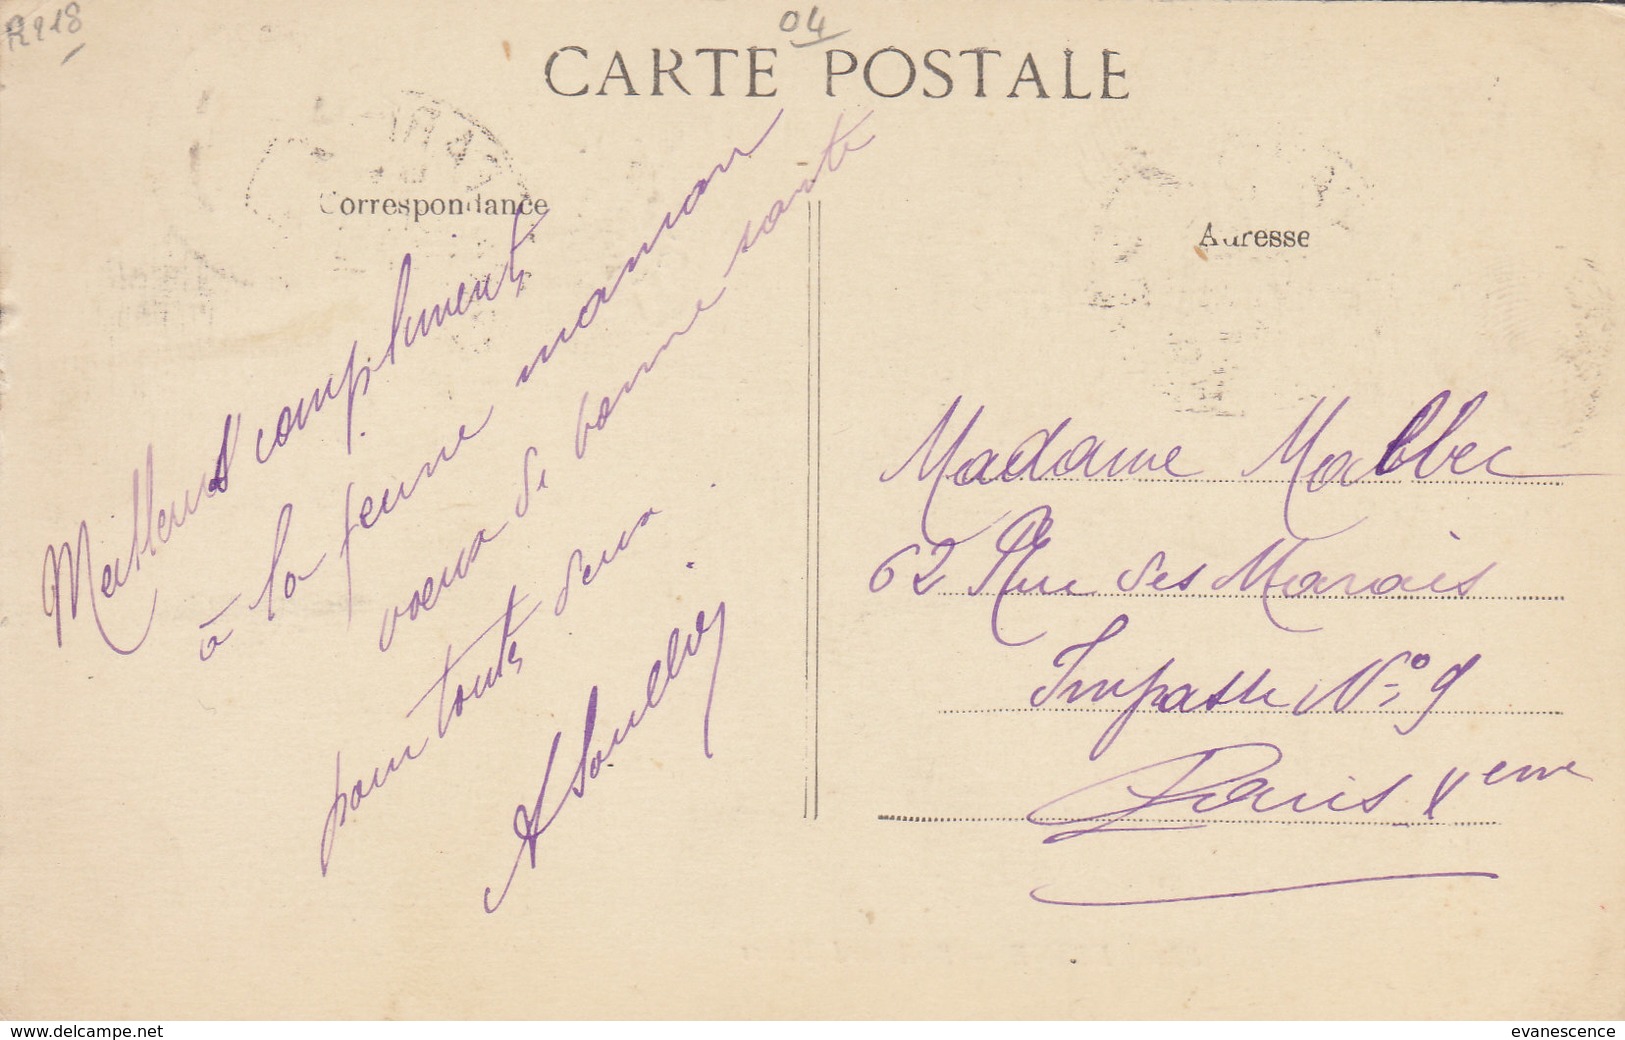 R218
04
CARTE POSTALE
Correspondance
Meilleurs compliments
à la jeune maman
voeux de bonne sante
pour toute deux
A Soulley
Adresse
Madame Malbec
62 Rue des Marais
Impasse N° 9
Paris Xeme
www.delcampe.net
evanescence